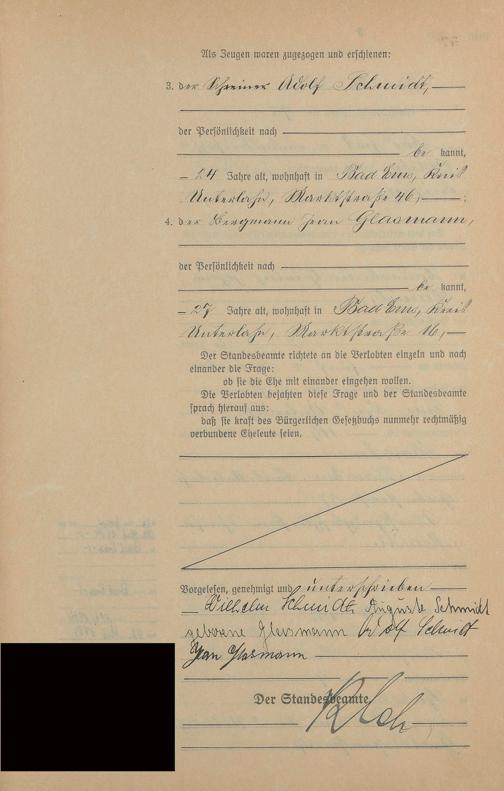 Als Zeugen waren zugezogen und erschienen:
3. der Schreiner Adolf Schmidt,
der Persönlichkeit nach
be kannt,
24 Jahre alt, wohnhaft in Bad Ems, Kreis
Unterlahn, Marktstraße 46,;
4. der Bergmann Jean Glasmann,
der Persönlichkeit nach
be kannt,
27 Jahre alt, wohnhaft in Bad Ems, Kreis
Unterlahn, Marktstraße 16,
Der Standesbeamte richtete an die Verlobten einzeln und nach
einander die Frage:
ob sie die Ehe mit einander eingehen wollen.
Die Verlobten bejahten diese Frage und der Standesbeamte
sprach hierauf aus:
daß sie kraft des Bürgerlichen Gesetzbuchs nunmehr rechtmäßig
verbundene Eheleute seien.
Vorgelesen, genehmigt und unterschrieben
Wilhelm Schmidt, Auguste Schmidt
geborene Glasmann Adolf Schmidt
Jean Glasmann
Der Standesbeamte